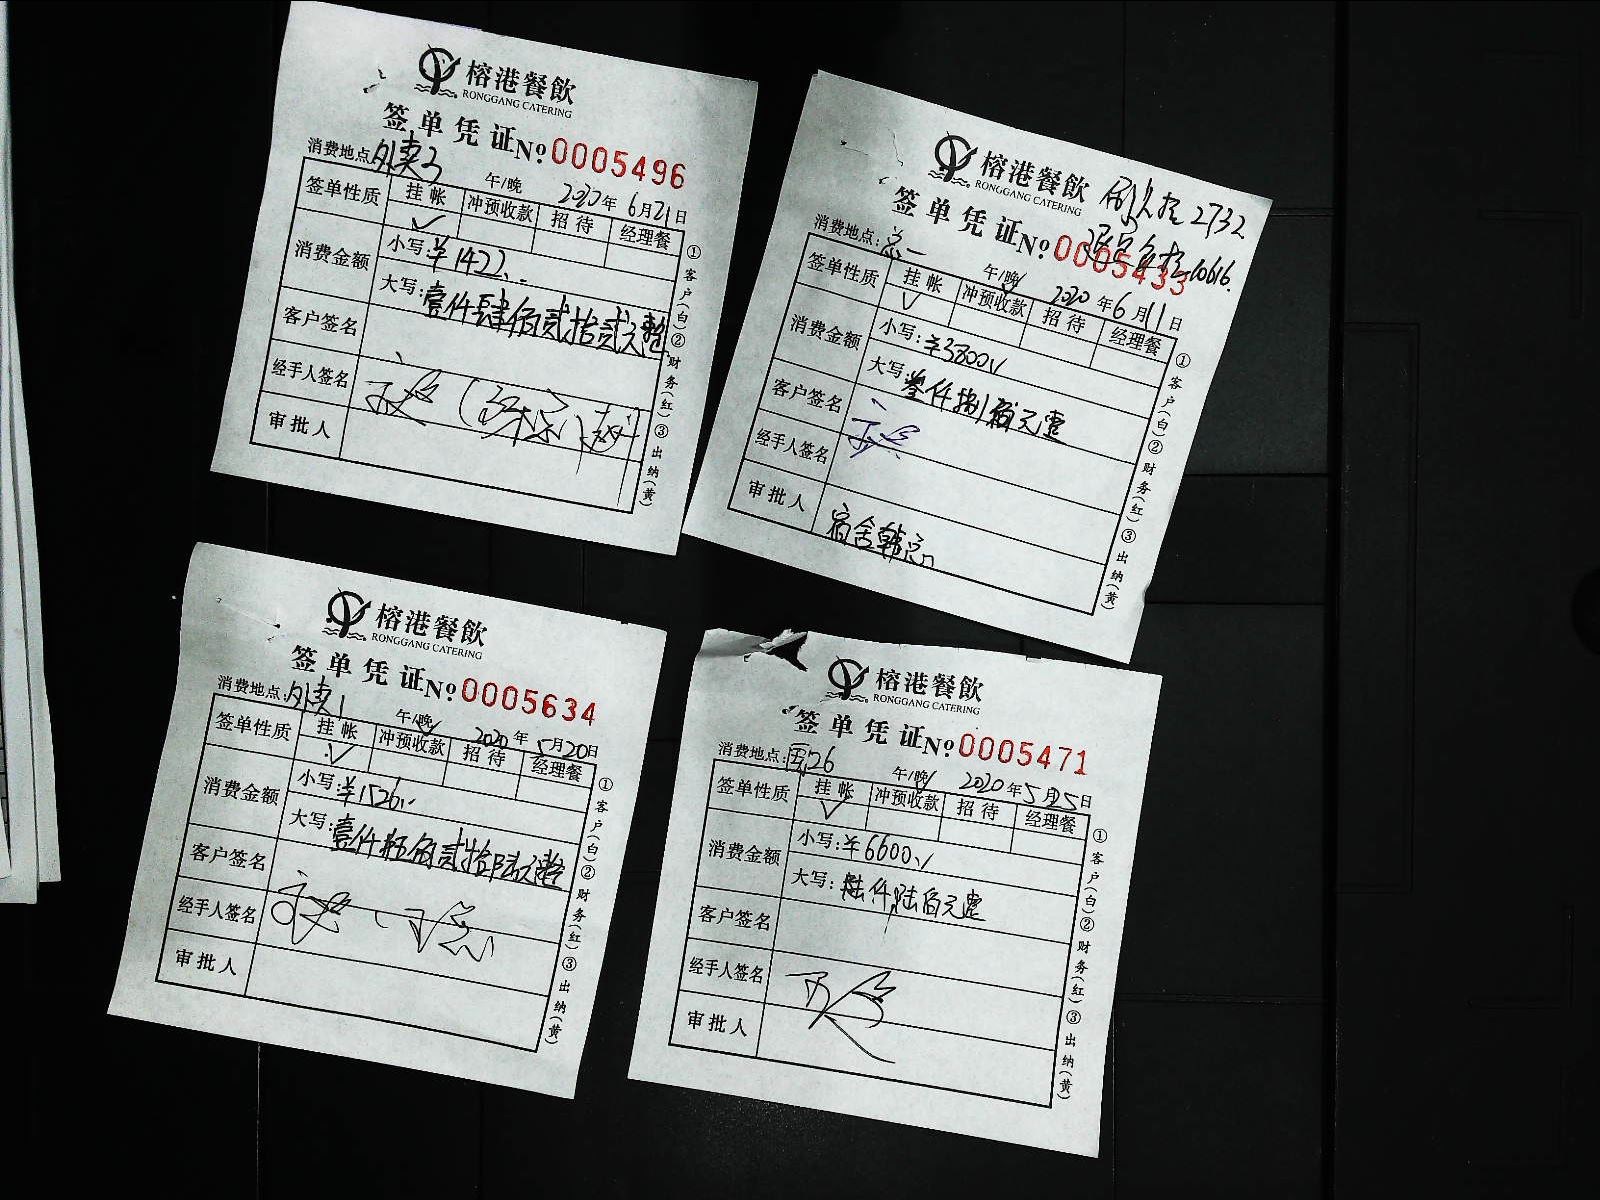 榕港餐飲
RONGGANG CATERING
签单凭证 No 0005496
消费地点:外卖2 午/晚 2020年6月21日
签单性质 挂帐 冲预收款 招待 经理餐
✓
消费金额 小写:¥1422..
大写:壹仟肆佰贰拾贰元整
客户签名
经手人签名
审批人
①客户(白)②财务(红)③出纳(黄)
榕港餐飲
RONGGANG CATERING
2732
签单凭证 No 0005433
10616.
消费地点:总一 午/晚✓ 2020年6月11日
签单性质 挂帐 冲预收款 招待 经理餐
✓
消费金额 小写:¥3800
大写:叁仟捌佰元整
客户签名
经手人签名
审批人 宿舍韩总
①客户(白)②财务(红)③出纳(黄)
榕港餐飲
RONGGANG CATERING
签单凭证 No 0005634
消费地点:外卖1 午/晚✓ 2020年5月20日
签单性质 挂帐 冲预收款 招待 经理餐
✓
消费金额 小写:¥1526..
大写:壹仟伍佰贰拾陆元整
客户签名
经手人签名
审批人
①客户(白)②财务(红)③出纳(黄)
榕港餐飲
RONGGANG CATERING
签单凭证 No 0005471
消费地点: 26 午/晚✓ 2020年5月25日
签单性质 挂帐 冲预收款 招待 经理餐
✓
消费金额 小写:¥6600
大写:陆仟陆佰元整
客户签名
经手人签名
审批人
①客户(白)②财务(红)③出纳(黄)